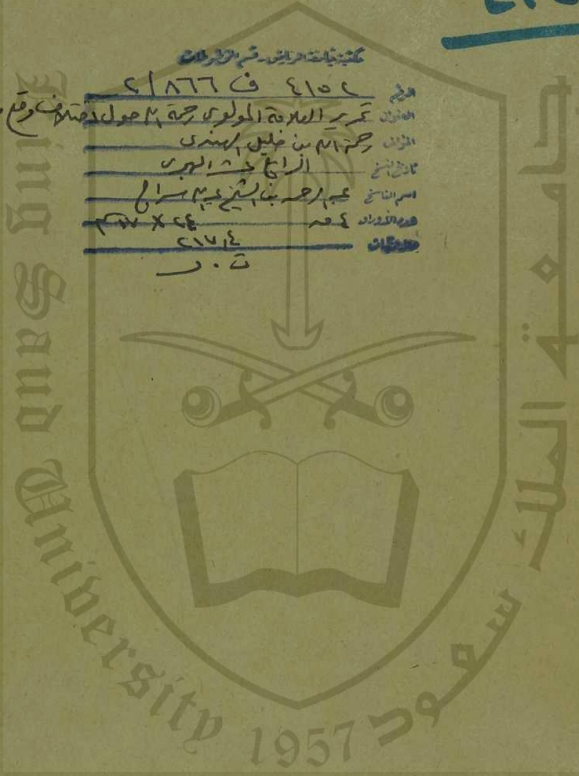 مكتبة جامعة الرياض - قسم المخطوطات
الرقم ٤١٥٢ ف ٨٦٦/٢
العنوان تحرير العلامة المولوي رحمة الله حول اختلاف وقع
المؤلف رحمة الله بن خليل الهندي
تاريخ النسخ الرابع عشر الهجري
اسم الناسخ عبد الرحمن بن الشيخ عبد الله سراج
عدد الأوراق ٤ ق ٢٤ X ١٧ سم
ملاحظات ٢١٧٫٤
ت . ر
جامعة الملك سعود
King Saud University
1957